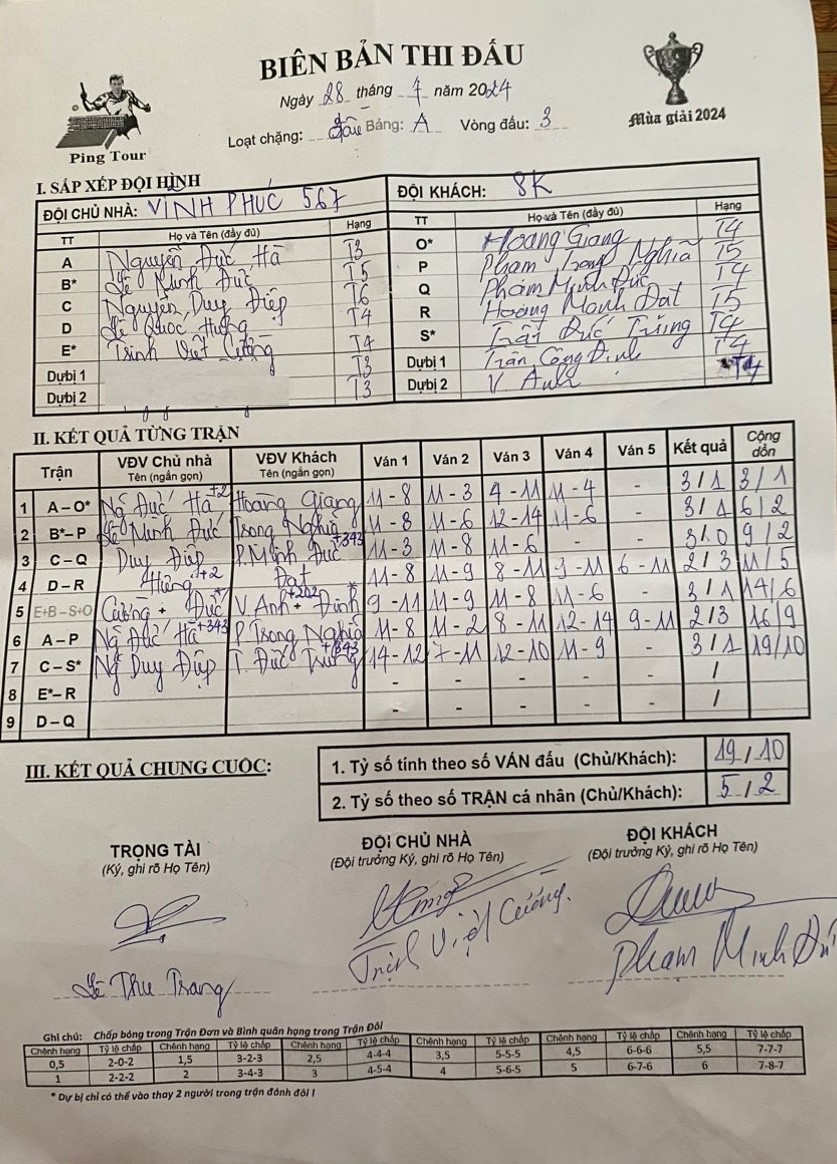 BIÊN BẢN THI ĐẤU
Ngày 28 tháng 7 năm 2024
Loạt chặng: Đầu Bảng: A Vòng đấu: 3
Ping Tour
Mùa giải 2024
I. SẮP XẾP ĐỘI HÌNH
ĐỘI CHỦ NHÀ: VĨNH PHÚC 567 ĐỘI KHÁCH: 8K
TT Họ và Tên (đầy đủ) Hạng TT Họ và Tên (đầy đủ) Hạng
A Nguyễn Đức Hà T3 O* Hoàng Giang T4
B* Lê Minh Đức T5 P Phạm Trọng Nghĩa T5
C Nguyễn Duy Điệp T6 Q Phạm Minh Đức T4
D Lê Quốc Hưng T4 R Hoàng Mạnh Đạt T5
E* Trịnh Việt Cường T4 S* Trần Đức Trung T4
Dự bị 1 T3 Dự bị 1 Trần Công Định T4
Dự bị 2 T3 Dự bị 2 V Anh T4
II. KẾT QUẢ TỪNG TRẬN
Trận VĐV Chủ nhà Tên (ngắn gọn) VĐV Khách Tên (ngắn gọn) Ván 1 Ván 2 Ván 3 Ván 4 Ván 5 Kết quả Cộng dồn
1 A – O* Ng Đức Hà +2 Hoàng Giang 11 - 8 11 - 3 4 - 11 11 - 4 - 3 / 1 3 / 1
2 B* – P Lê Minh Đức Trọng Nghĩa 11 - 8 11 - 6 12 - 14 11 - 6 - 3 / 1 6 / 2
3 C – Q Duy Điệp P. Minh Đức +343 11 - 3 11 - 8 11 - 6 - - 3 / 0 9 / 2
4 D – R Hưng +2 Đạt 11 - 8 11 - 9 8 - 11 9 - 11 6 - 11 2 / 3 11 / 5
5 E+B – S+O Cường + Đức* V. Anh + Định* +202 9 - 11 11 - 9 11 - 8 11 - 6 - 3 / 1 14 / 6
6 A – P Ng Đức Hà +343 P Trọng Nghĩa 11 - 8 11 - 2 8 - 11 12 - 14 9 - 11 2 / 3 16 / 9
7 C – S* Ng Duy Điệp T. Đức Trung +343 14 - 12 7 - 11 12 - 10 11 - 9 - 3 / 1 19 / 10
8 E* – R - - - - - /
9 D – Q - - - - - /
III. KẾT QUẢ CHUNG CUỘC:
1. Tỷ số tính theo số VÁN đấu (Chủ/Khách): 19 / 10
2. Tỷ số theo số TRẬN cá nhân (Chủ/Khách): 5 / 2
TRỌNG TÀI ĐỘI CHỦ NHÀ ĐỘI KHÁCH
(Ký, ghi rõ Họ Tên) (Đội trưởng Ký, ghi rõ Họ Tên) (Đội trưởng Ký, ghi rõ Họ Tên)
Lê Thu Trang Trịnh Việt Cường. Phạm Minh Đức
Ghi chú: Chấp bóng trong Trận Đơn và Bình quân hạng trong Trận Đôi
Chênh hạng Tỷ lệ chấp Chênh hạng Tỷ lệ chấp Chênh hạng Tỷ lệ chấp Chênh hạng Tỷ lệ chấp Chênh hạng Tỷ lệ chấp Chênh hạng Tỷ lệ chấp
0,5 2-0-2 1,5 3-2-3 2,5 4-4-4 3,5 5-5-5 4,5 6-6-6 5,5 7-7-7
1 2-2-2 2 3-4-3 3 4-5-4 4 5-6-5 5 6-7-6 6 7-8-7
* Dự bị chỉ có thể vào thay 2 người trong trận đánh đôi !